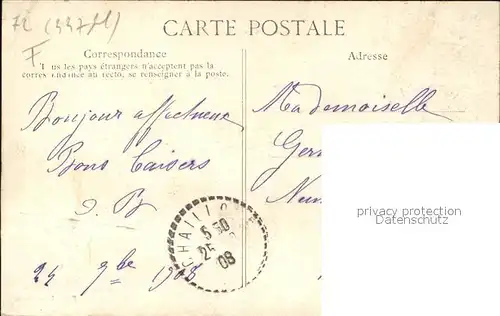 72 (447M)
F
CARTE POSTALE
Correspondance
Tous les pays étrangers n'acceptent pas la
correspondance au recto, se renseigner à la poste.
Adresse
Bonjour affectueux
Bons Baisers
J. B
24 9bre 1908
Mademoiselle
Ger
CHAILLO
5 30
25
08
privacy protection
Datenschutz